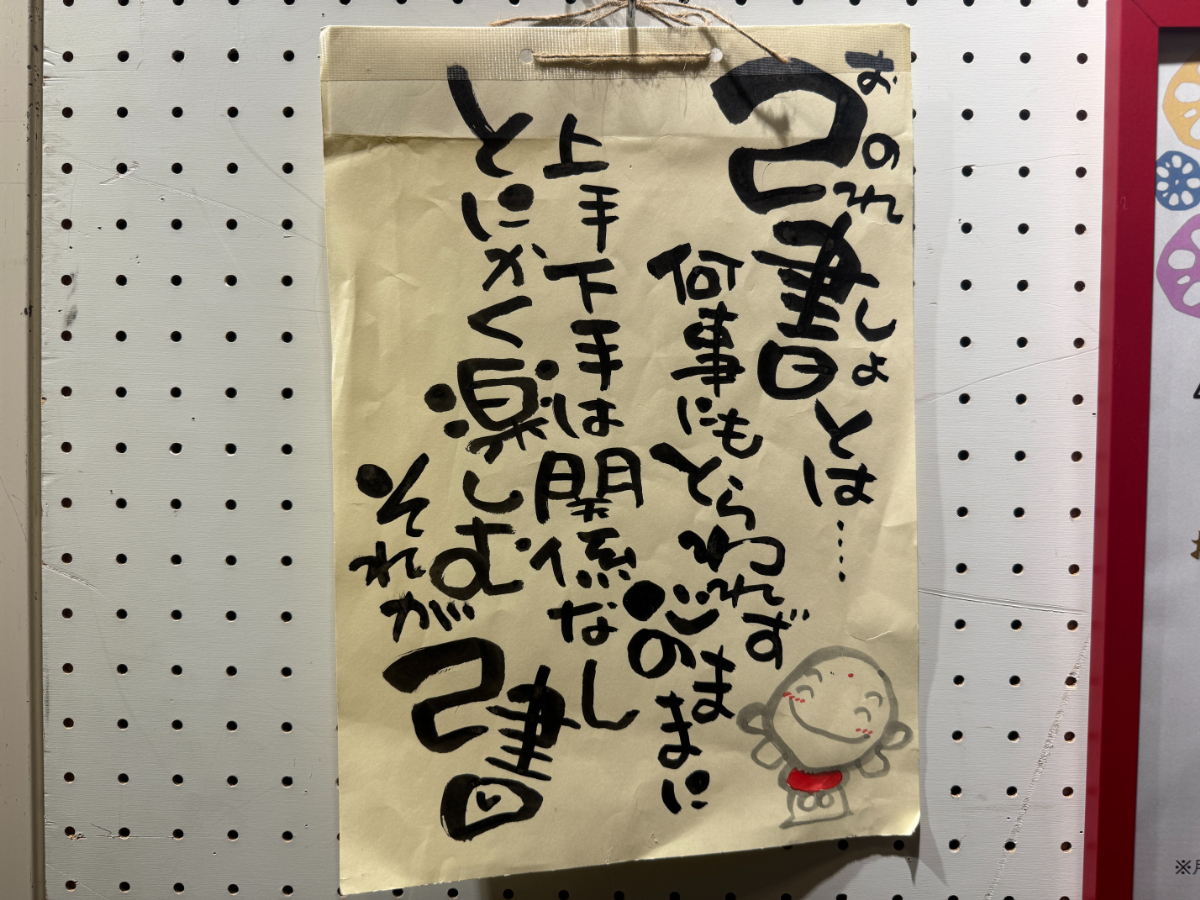 己書とは…
おのれしょ
何事にもとらわれず
心のままに
上手下手は関係なし
とにかく楽しむ
それが
己書
※月